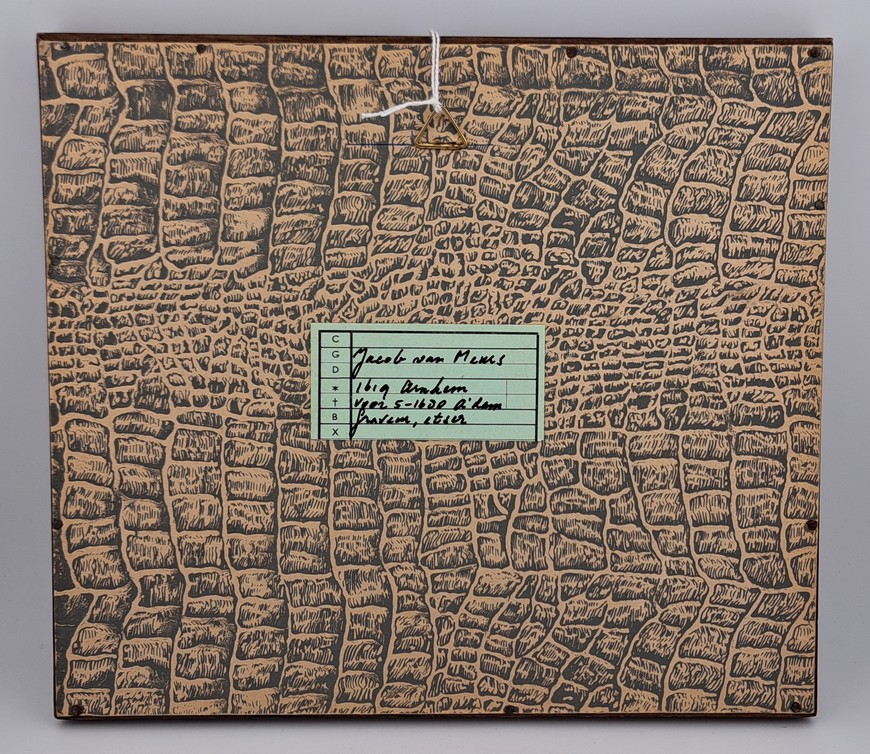 C
G Jacob van Meurs
D
* 1619 Arnhem
† voor 5-1680 A'dam
B graveur, etser
X